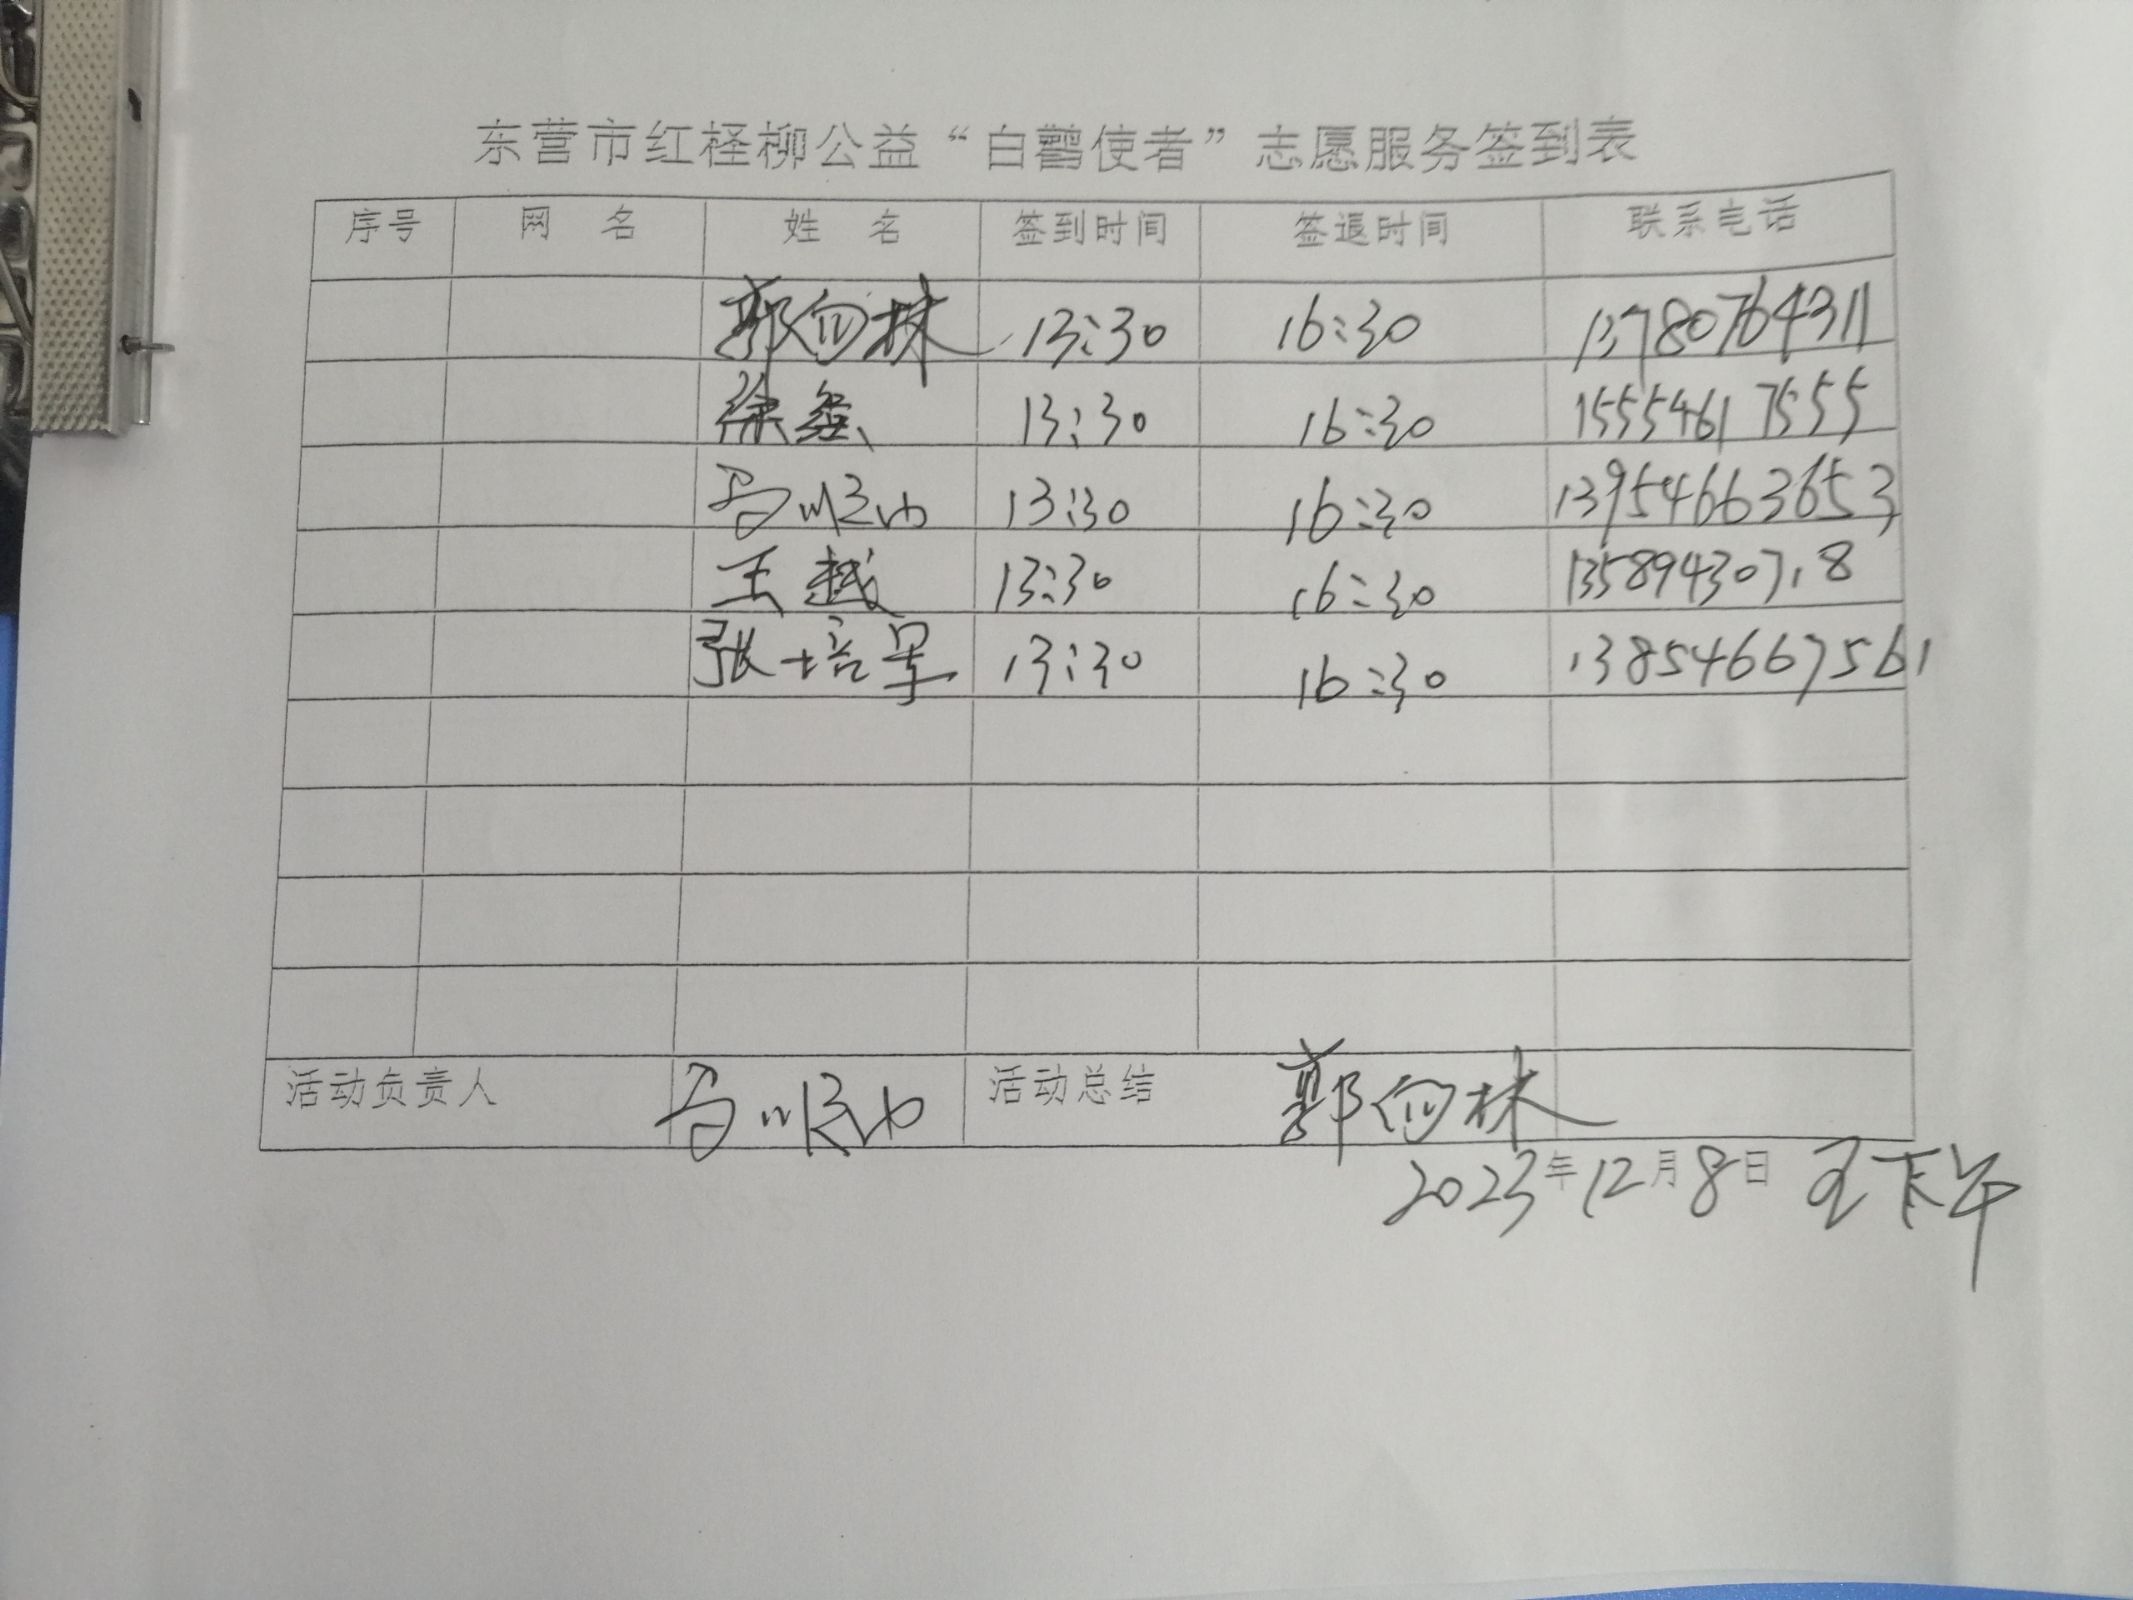 东营市红柽柳公益“白鹳使者”志愿服务签到表
序号 网 名 姓 名 签到时间 签退时间 联系电话
郭向林 13:30 16:30 13780764311
徐鑫 13:30 16:30 15554617555
13:30 16:30 13954663653
王越 13:30 16:30 13589430718
张培军 13:30 16:30 13854667561
活动负责人 活动总结 郭向林
2023年12月8日 五下午